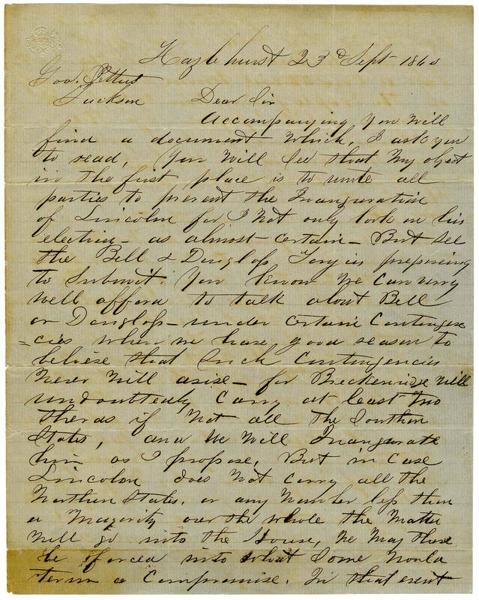 Hazlehurst 23d Sept 1860
Gov. Pettus
Jackson Dear Sir
Accompanying you will
find a document which, I ask you
to read, You will see that my object
in the first place is to unite all
parties to prevent the Inauguration
of Lincoln for I not only look on his
election as almost certain - But see
the Bell & Douglass, is preparing
to submit. You know we can very
well afford to talk about Bell
or Douglass - under certain Contingen
=cies when we have good reason to
believe that such Contingencies
Never will arise - for Breckenrige will
undoubtedly Carry at least two
therds if not all the Southern
States, and we will Inaugurate
him as I propose, But in case
Lincoln does not carry all the
Northern States, or any number less than
a Majority over the whole the Matter
will go into the House, we may there
be forced into what some would
term a Compromise. In that event